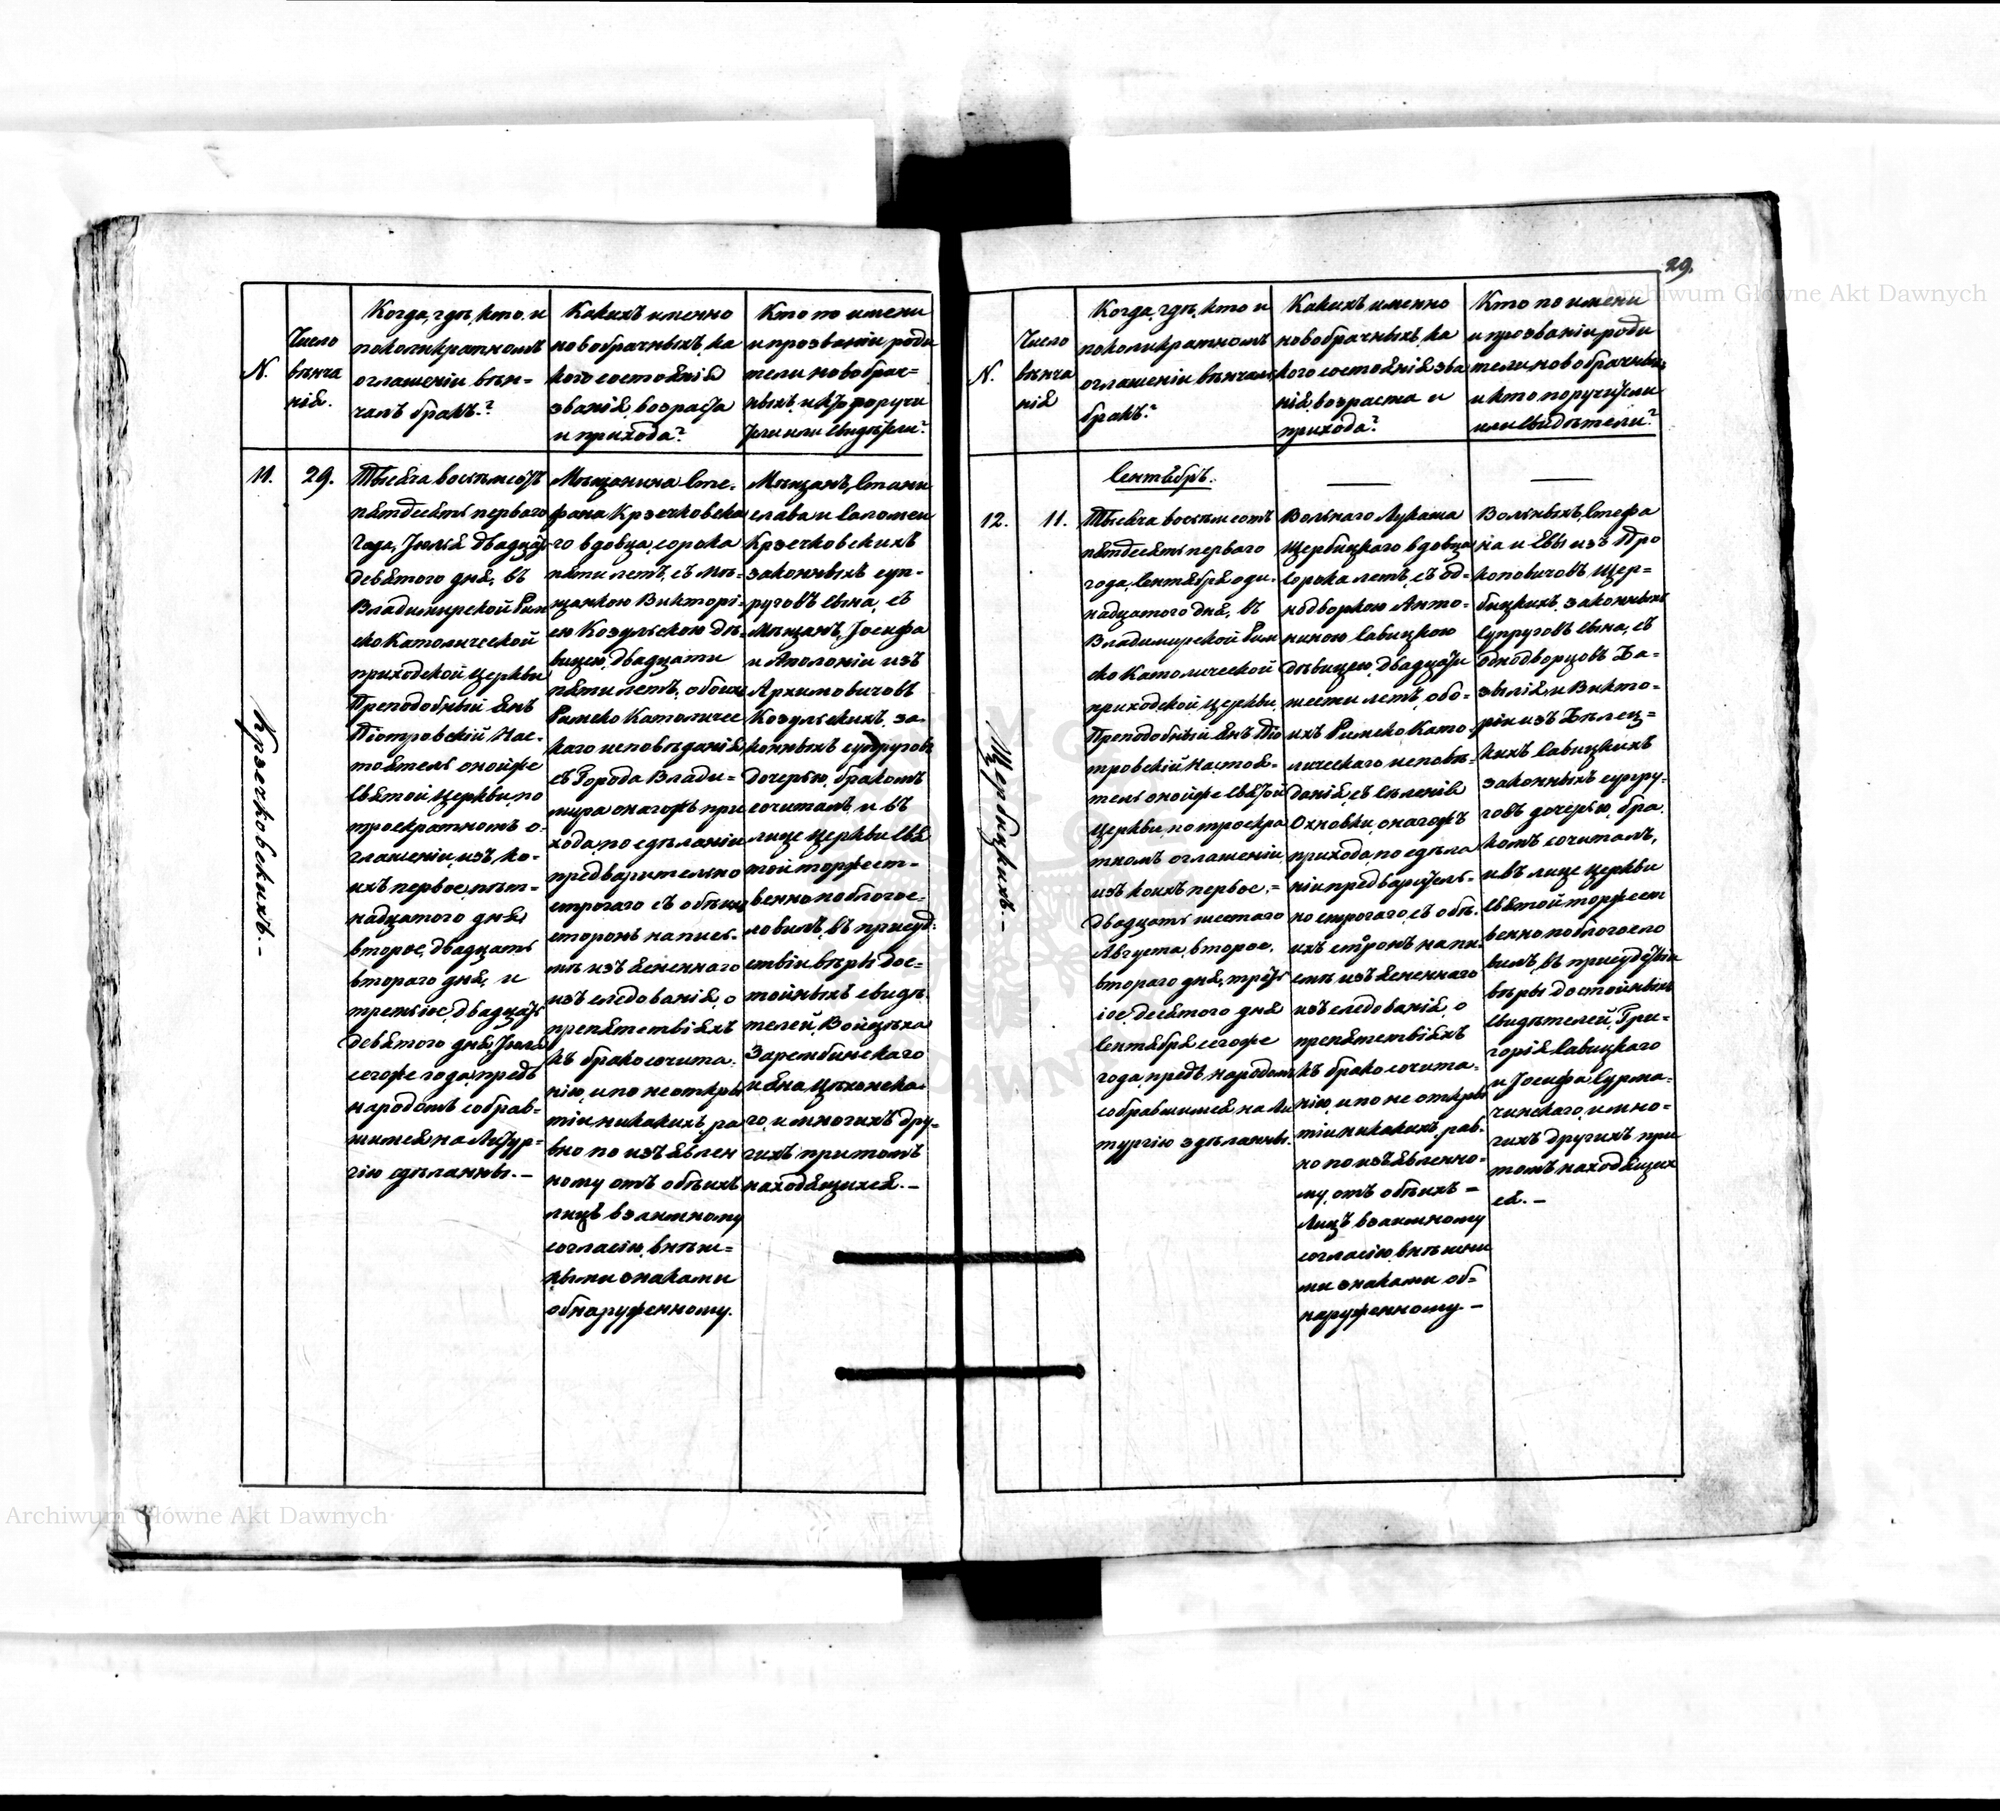 29.
Archiwum Główne Akt Dawnych
N.
Число
вѣнча
нія.
Когда, гдѣ, кто, и
поколикратномъ
оглашеніи вѣн-
чалъ бракъ.?
Каких именно
новобрачныхъ, ка
кого состоянія
званія, возраста
и прихода?
Кто по имени
и прозванію роди
тели новобрач=
ныхъ, и кто поручи
тели или свидѣтели?
11.
29.
Крзечковскихъ. -
Тысяча восемьсотъ
пятдесятъ перваго
Года, Іюля двадцать
девятого дня, въ
Владимирской Рим
ско Католической
приходской церкви
Преподобный Янъ
Піотровскій Нас-
тоятель онойже
Святой церкви по
троекратномъ о-
глашеніи изъ ко-
ихъ первое, пят-
надцатого дня,
второе, двадцать
второго дня, и
третьіое, двадцать
девятого дня Іюля
сегоже года, предъ
народомъ собрав-
шимся на Литур-
гію сдѣланны. -
Мѣщанина Сте-
фана Крзечковска
го вдовца, сорока
пяти летъ, съ мѣ-
щанкою Викторі-
ею Козульскою дѣ-
вицею, двадцати
пяти летъ, обоихъ
Римско Католичес
каго исповѣданія
съ Города Влади=
мира онагожъ при
хода, по сдѣланіи
предварительно
строгаго съ обѣихъ
сторонъ на пись-
мѣ изъясненнаго
изъ следованія, о
препятствіяхъ
къ брако сочита-
нію, и по не откры
тіи никакихъ, ра
вно по изъявлен
ному отъ обѣихъ
лицъ взаимному
согласію, внѣш=
ными знаками
обнаруженному.
Мѣщанъ, Стани
слава и Саломеи
Крзечковскихъ
законныхъ суп-
руговъ сына, съ
Мѣщанъ, Іосифа
и Аполоніи изъ
Архимовичовъ
Козульскихъ, за-
конныхъ супруговъ
дочерью, бракомъ
сочиталъ, и въ
лице церкви Свя
той торжест-
венно поблогос-
ловилъ, въ присуд-
ствіи вѣры дос=
тойныхъ свидѣ-
телей, Войцѣха
Зарембинскаго
и Яна Цѣхонска-
го, и многихъ дру-
гихъ притомъ
находящихся. -
N.
Число
вѣнча
нія
Когда, гдѣ, кто и
поколикратномъ
оглашеніи вѣнчалъ
бракъ?
Каких именно
новобрачныхъ, ка
кого состоянія зва
нія, возраста и
прихода?
Кто по имени
и прозванію роди
тели новобрачныхъ
и кто поручители
или свидѣтели?
12.
11.
Щербицкихъ. -
Сентябръ.
Тысяча восемьсотъ
пятдесятъ перваго
года, Сентября оди-
надцатого дня, въ
Владимирской Рим
ско Католической
приходской церкви,
Преподобный Янъ Піо
тровскій Настоя-
тель онойже Святой
церкви, по троекра
тномъ оглашеніи,
изъ коихъ первое, =
двадцать шестаго
Августа, второе,
втораго дня, треть
іое, десятого дня
Сентября сегоже
года, предъ народомъ
собравшимся на Ли
тургію здѣланны.
Вольнаго Лукаша
Щербицкаго вдовца
сорока летъ, съ од-
нодворкою Анто-
ниною Савицкою
дѣвицею, двадцати
шести летъ, обо-
ихъ Римско Като-
лическаго исповѣ-
данія, съ Селенія
Охновки, онагожъ
прихода, по сдѣла
ніи предваритель-
но строгаго, съ обѣ-
ихъ сторонъ на пи-
смѣ изъясненнаго
изъ следованія, о
препятствіяхъ
къ брако сочита-
нію, и по не откры
тіи никакихъ, рав-
но по изъявленно-
му, отъ обѣихъ =
Лицъ взаимному
согласію, внѣшны
ми знаками об=
наруженному. -
Вольныхъ, Стефа
на и Евы изъ Про
коповичовъ Щер=
бицкихъ, законныхъ
супруговъ сына, съ
однодворцовъ Ба-
зылія, и Викто-
ріи изъ Бѣлец=
кихъ Савицкихъ
законныхъ супру-
говъ дочерью, бра-
комъ сочиталъ,
и въ лице церкви
Святой торжест
венно поблогосло
вилъ, въ присудствіи
вѣры достойныхъ
свидѣтелей, Гри-
горія Савицкаго
и Іосифа Сурма-
чинскаго, и мно-
гихъ другихъ при
томъ находящих
ся. -
Archiwum Główne Akt Dawnych